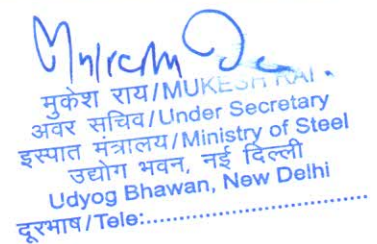 मुकेश राय/MUKESH RAI
अवर सचिव/Under Secretary
इस्पात मंत्रालय/Ministry of Steel
उद्योग भवन, नई दिल्ली
Udyog Bhawan, New Delhi
दूरभाष/Tele:......................................